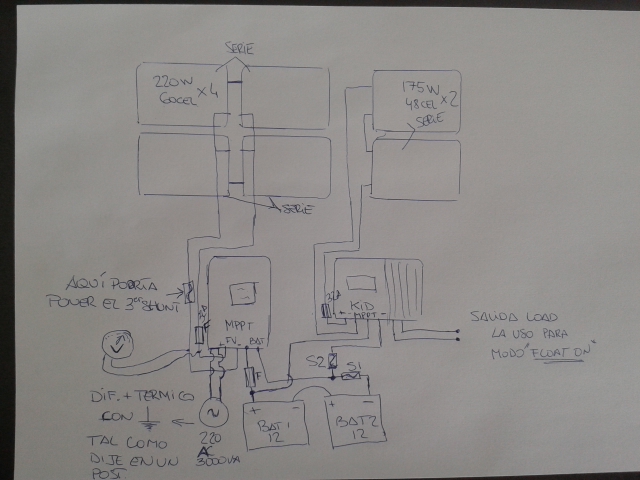 SERIE
220W
60CEL x4
175W
48CEL x2
SERIE
SERIE
AQUÍ PODRÍA
PONER EL 3er SHUNT
MPPT
+ FV - + BAT
KID
+ - MPPT + -
SALIDA LOAD
LA USO PARA
MODO "FLOAT ON"
S2
S1
F
DIF. + TERMICO
CON
TAL COMO
DIJE EN UN
POST
220
AC
3000VA
+ -
BAT1
12
+ -
BAT2
12